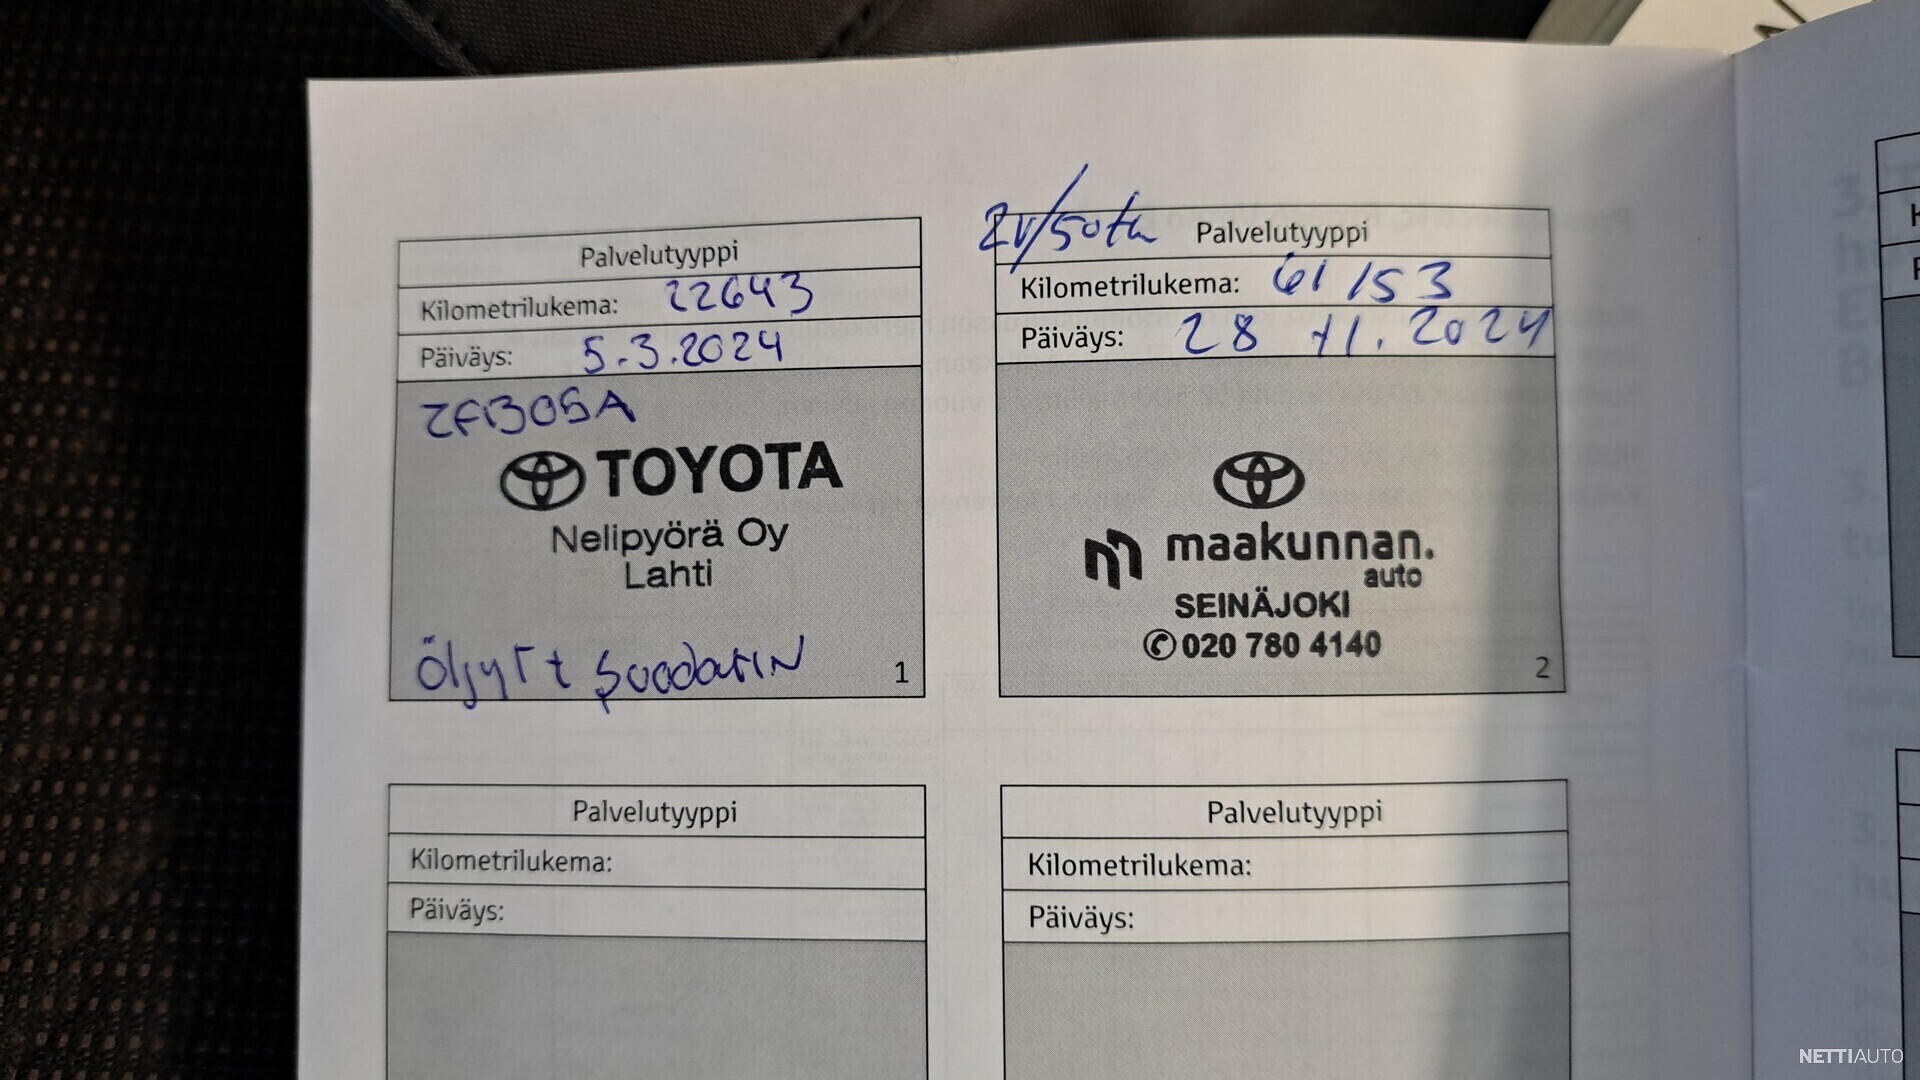 Palvelutyyppi
Kilometrilukema: 22643
Päiväys: 5.3.2024
TOYOTA
Nelipyörä Oy
Lahti
Öljyt + suodatin
1
2v/50tk Palvelutyyppi
Kilometrilukema: 61153
Päiväys: 28 11.2024
maakunnan.
auto
SEINÄJOKI
020 780 4140
2
Palvelutyyppi
Kilometrilukema:
Päiväys:
Palvelutyyppi
Kilometrilukema:
Päiväys:
NETTIAUTO